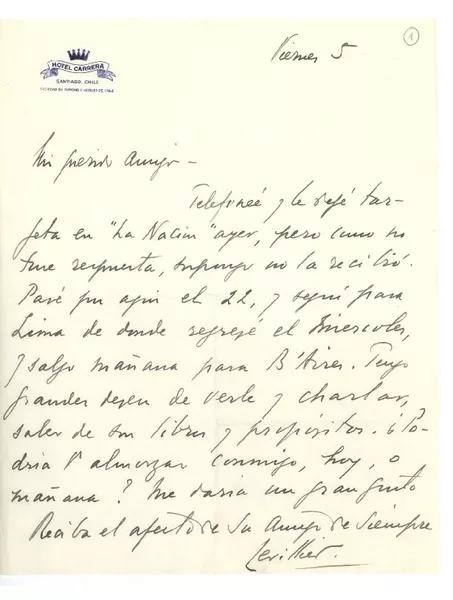 1
Viernes 5
HOTEL CARRERA
SANTIAGO, CHILE
Mi querido Amigo -
Telefoneé y le dejé tar-
jeta en "La Nación" ayer, pero como no
tuve respuesta, supongo no la recibió.
Pasé por aquí el 22, y seguí para
Lima de donde regresé el Miércoles,
y salgo mañana para B'Aires. Tengo
grandes deseos de verle y charlar,
saber de sus libros y propósitos. ¿Po-
dría V almorzar conmigo, hoy, o
mañana? Me daría un gran gusto
Reciba el afecto de Su Amigo de Siempre
Levillier.